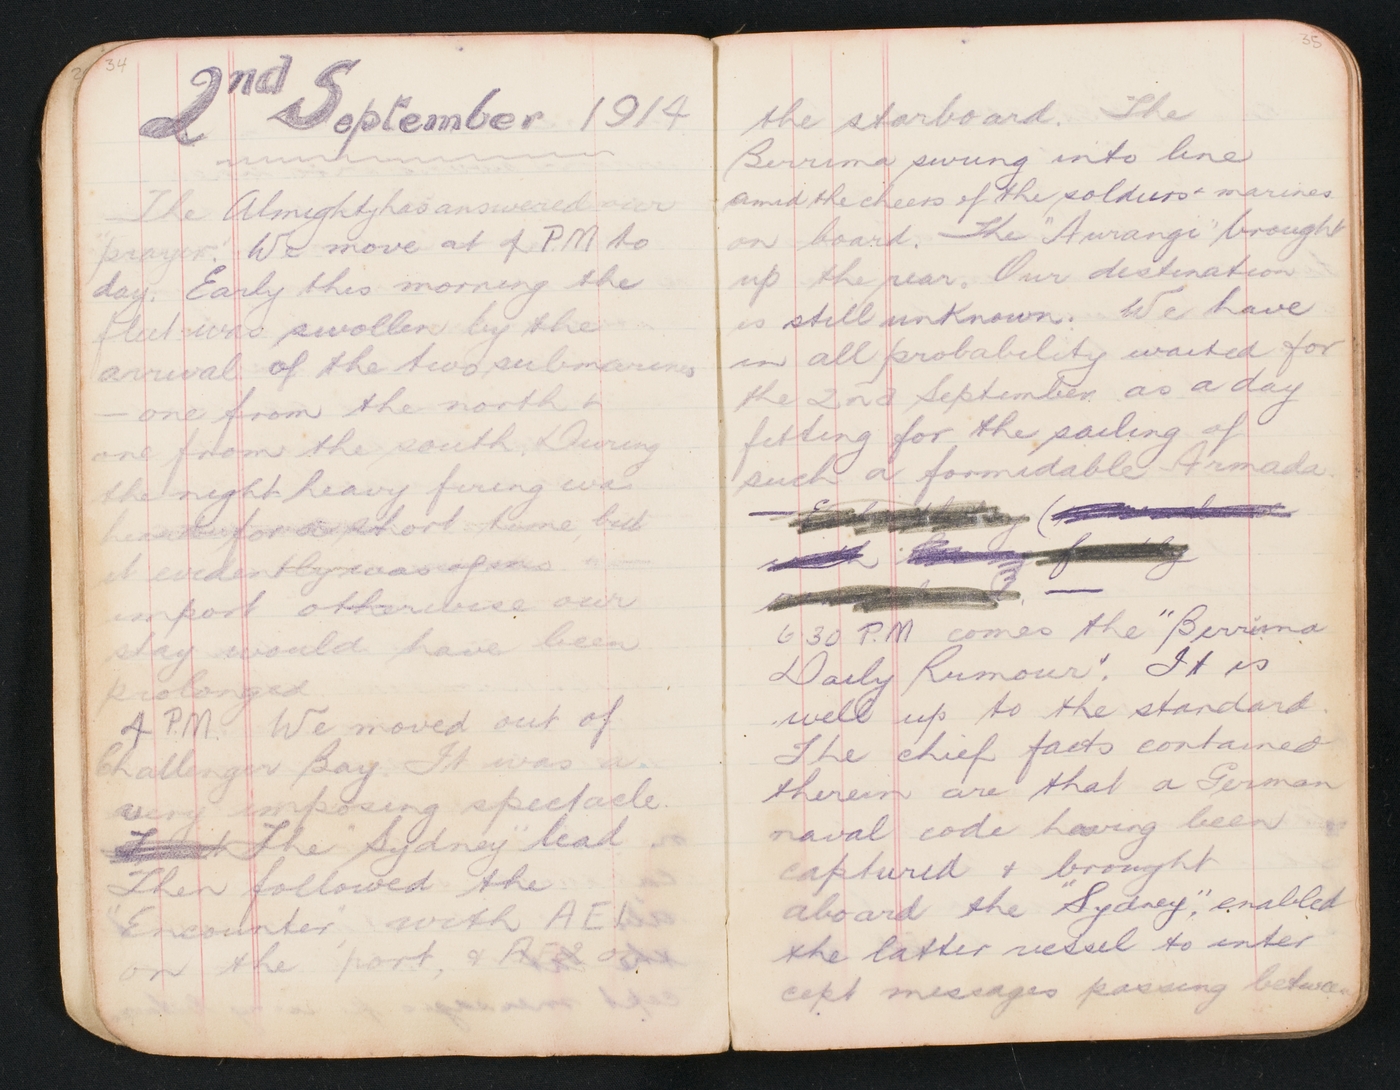 34
2nd September 1914
The Almighty has answered our
"prayer." We move at 4 P.M to
day. Early this morning the
fleet was swollen by the
arrival of the two submarines
— one from the north &
one from the south. During
the night heavy firing was
heard for a short time, but
it evidently was of no
import otherwise our
stay would have been
prolonged
4 P.M. We moved out of
Challenger Bay. It was a
very imposing spectacle.
The "Sydney" lead.
Then followed the
"Encounter", with AE1
on the port, &
35
the starboard. The
Berrima swung into line
amid the cheers of the soldiers & marines
on board. The "Aurangi" brought
up the rear. Our destination
is still unknown. We have
in all probability waited for
the 2nd September as a day
fitting for the sailing of
such a formidable Armada.
6 30 P.M comes the "Berrima
Daily Rumour". It is
well up to the standard.
The chief facts contained
therein are that a German
naval code having been
captured & brought
aboard the "Sydney", enabled
the latter vessel to inter
cept messages passing between